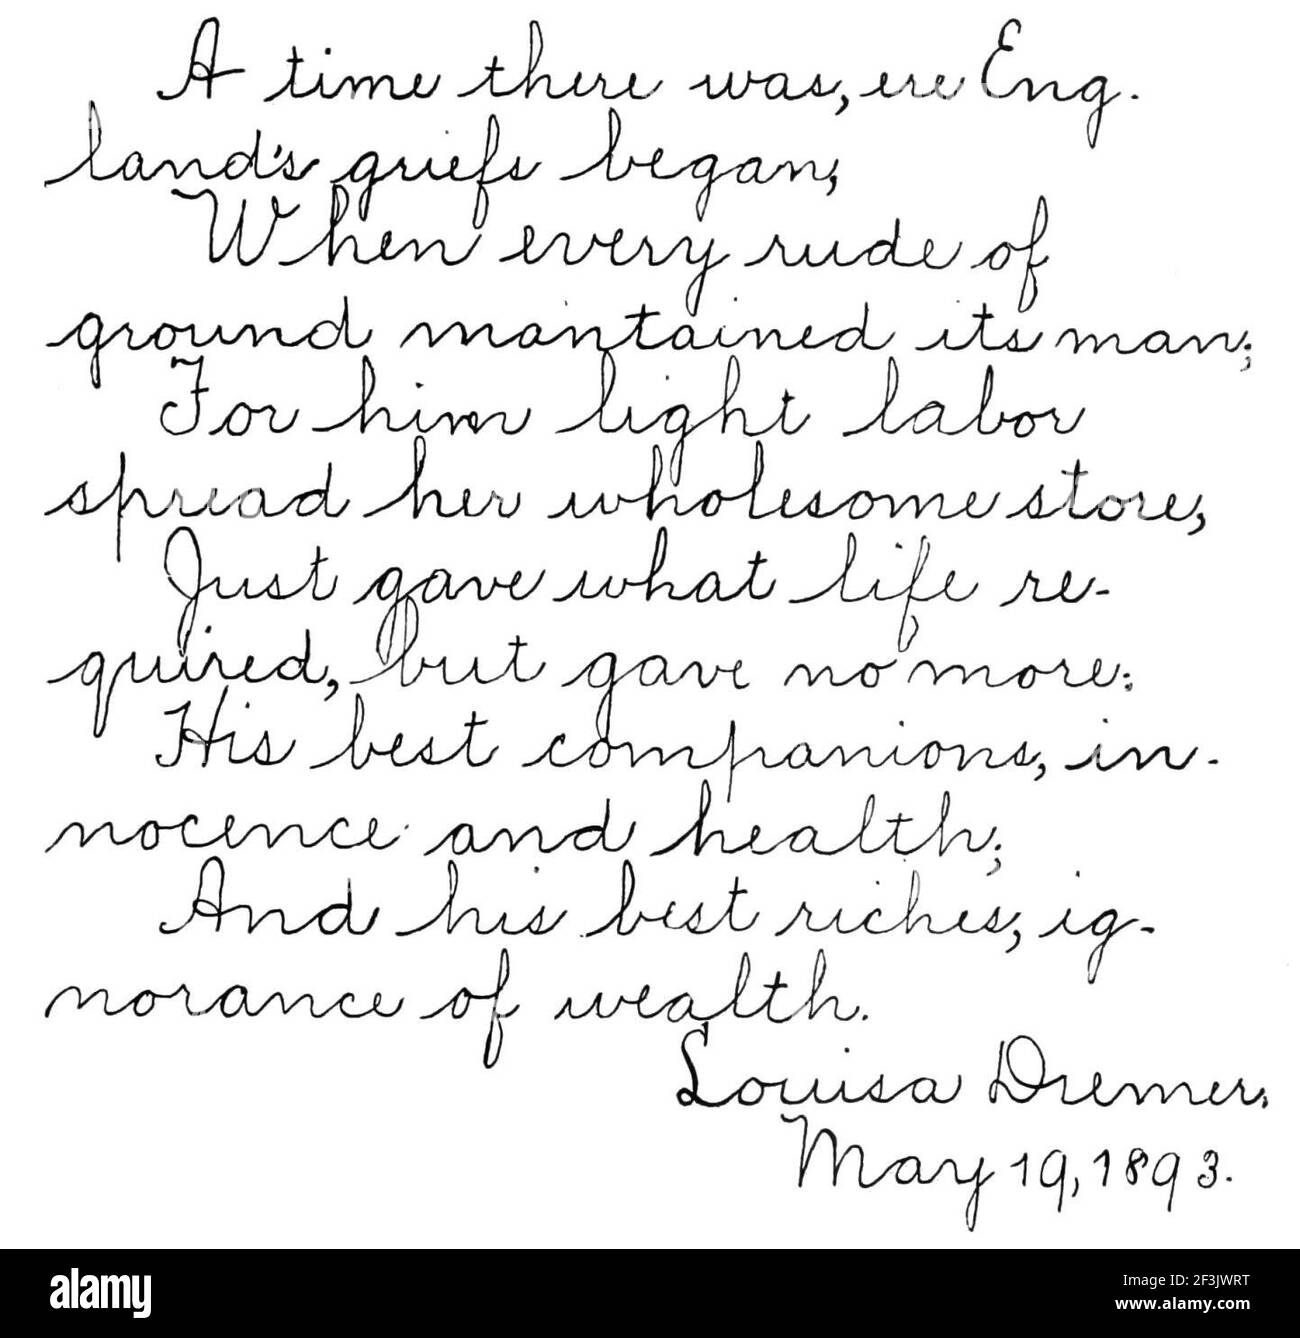 A time there was, ere Eng-
land's griefs began,
When every rude of
ground mantained its man;
For him light labor
spread her wholesome store,
Just gave what life re-
quired, but gave no more:
His best companions, in-
nocence and health;
And his best riches, ig-
norance of wealth.
Louisa Dremer.
May 19, 1893.
alamy
Image ID: 2F3JWRT
www.alamy.com